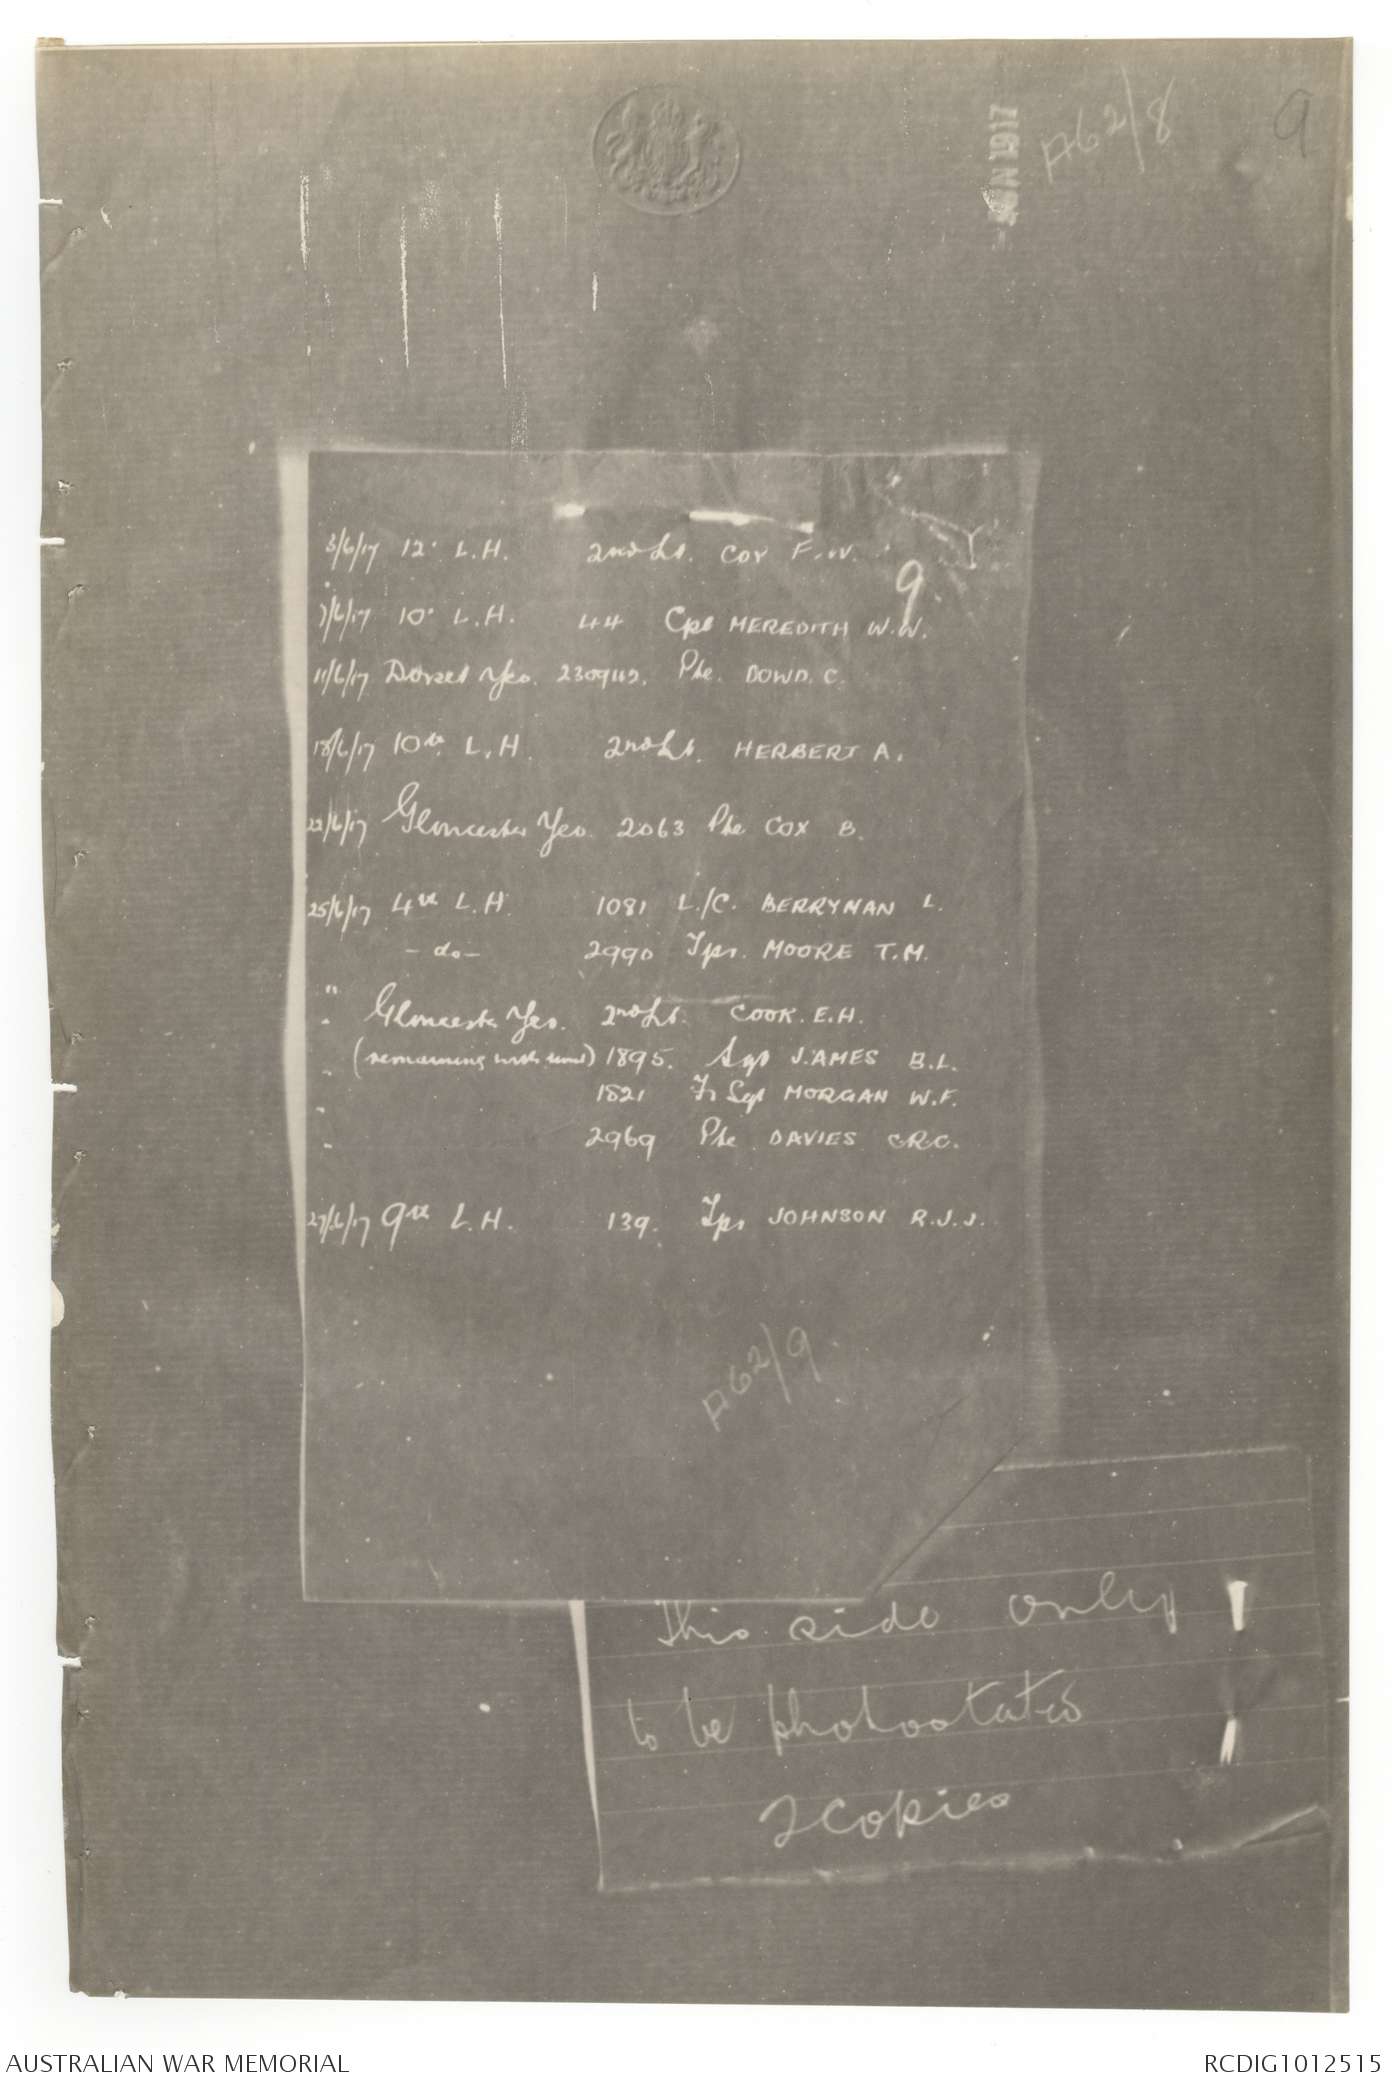 JUN 1917
A62/8
9
3/6/17 12th L.H. 2nd Lt. COX F.W.
9
7/6/17 10th L.H. 44 Cpl MEREDITH W.W.
11/6/17 Dorset Yeo. 230942. Pte. DOWD. C.
18/6/17 10th L.H. 2nd Lt. HERBERT A.
22/6/17 Gloucester Yeo. 2063 Pte COX B.
25/6/17 4th L.H. 1081 L./C. BERRYMAN L.
- do - 2990 Tpr. MOORE T.M.
" Gloucester Yeo. 2nd Lt. COOK. E.H.
" (remaining with unit) 1895. Sgt JAMES B.L.
" 1821 Fr Sgt MORGAN W.F.
" 2969 Pte DAVIES C.R.C.
27/6/17 9th L.H. 139. Tpr JOHNSON R.J.J.
A62/9
This side only
to be photostated
2 copies
AUSTRALIAN WAR MEMORIAL
RCDIG1012515